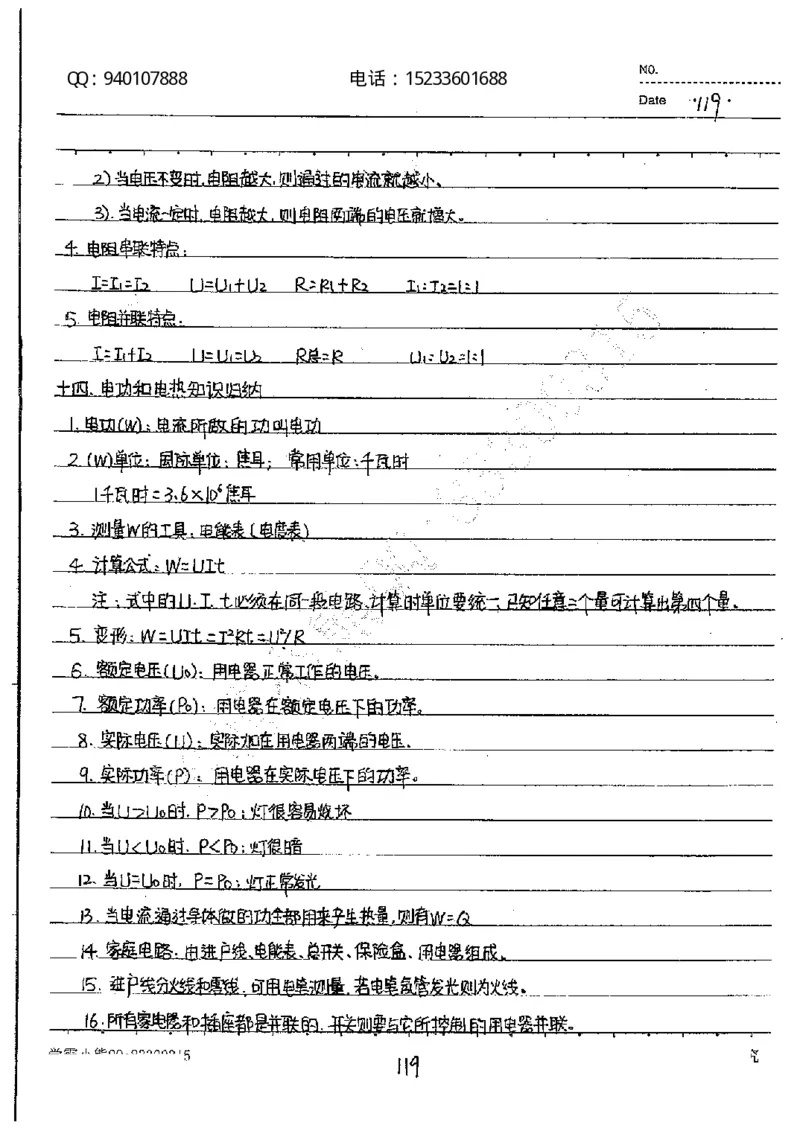 QQ：940107888 电话：15233601688 NO.
Date ·119·
2)当电压不变时,电阻越大,则通过的电流就越小、
3).当电流一定时,电阻越大,则电阻两端的电压就增大。
4.电阻串联特点：
I=I₁=I₂ U=U₁+U₂ R=R₁+R₂ I₁:I₂=1:1
5.电阻并联特点.
I=I₁+I₂ U=U₁=U₂ R总=R U₁:U₂=1:1
十四、电功和电热知识归纳
1.电功(W)：电流所做的功叫电功
2.(W)单位：国际单位：焦耳； 常用单位:千瓦时
1千瓦时=3.6×10⁶焦耳
3.测量W的工具：电能表(电度表)
4.计算公式：W=UIt
注：式中的U.I.t必须在同一段电路、计算时单位要统一,已知任意三个量可计算出第四个量。
5.变形：W=UIt=I²Rt=U²/R
6.额定电压(U₀)：用电器正常工作的电压。
7.额定功率(P₀)：用电器在额定电压下的功率。
8.实际电压(U)：实际加在用电器两端的电压、
9.实际功率(P)：用电器在实际电压下的功率。
10.当U>U₀时.P>P₀；灯很容易烧坏
11.当U<U₀时.P<P₀；灯很暗
12.当U=U₀时,P=P₀；灯正常发光
13.当电流通过导体做的功全部用来产生热量,则有W=Q
14.家庭电路：由进户线、电能表、总开关、保险盒、用电器组成。
15.进户线分火线和零线,可用电笔测量,若电笔氖管发光则为火线。
16.所有家电器和插座都是并联的,开关则要与它所控制的用电器并联。
119